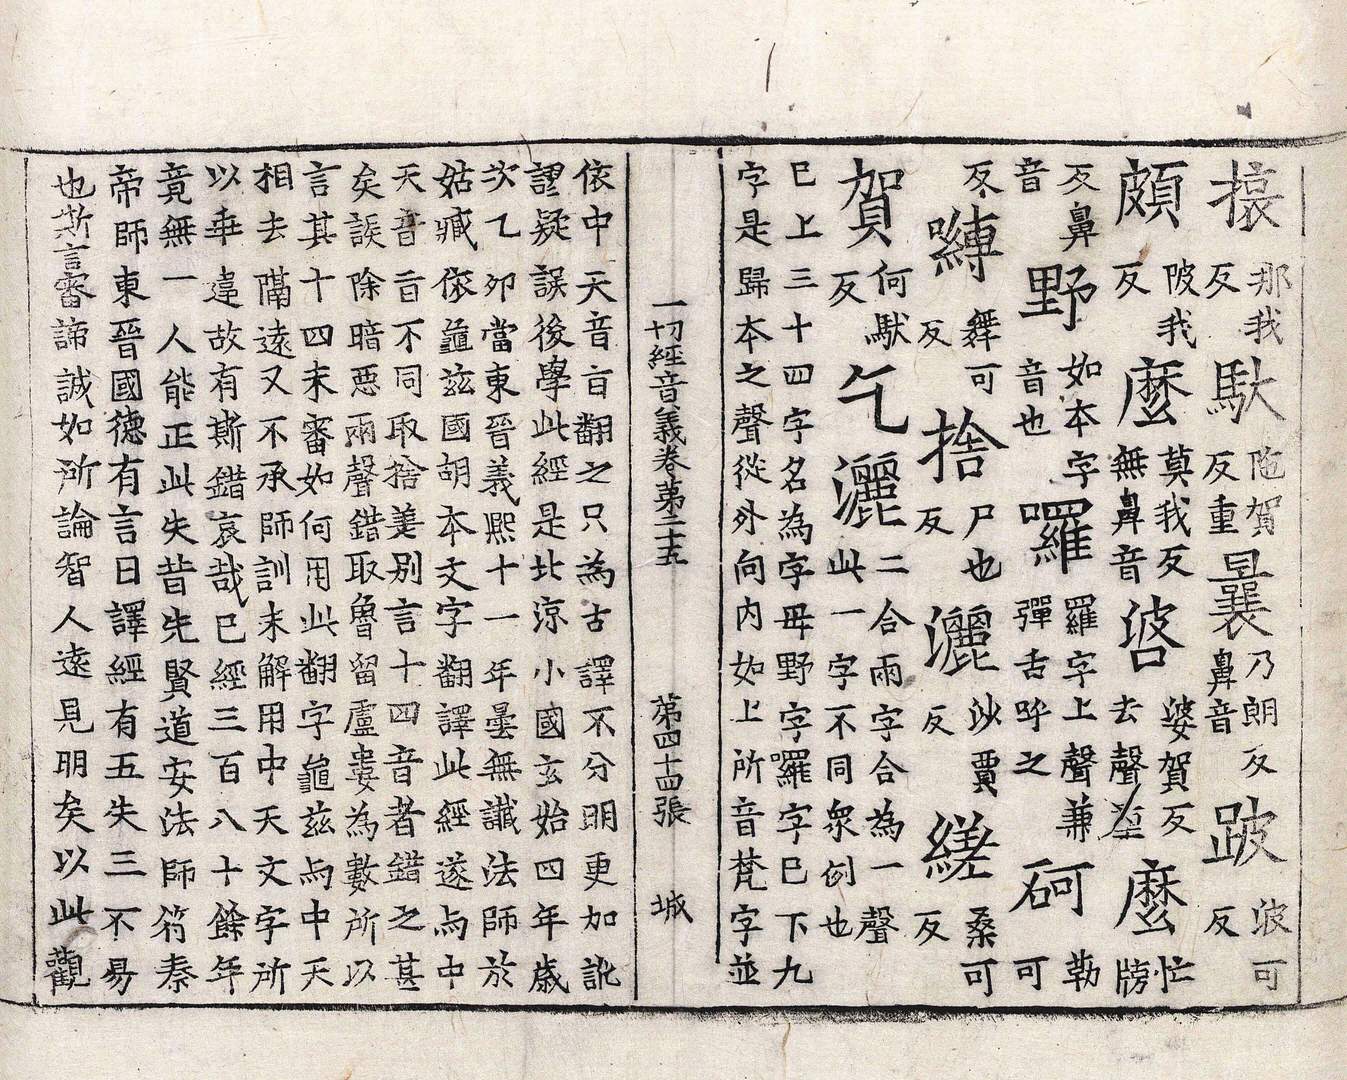 那我反馱陁賀反重曩乃朗反鼻音跛波可反
頗陂我反麼莫我反無鼻音婆賀反去聲重麼忙牓
反鼻音野如本字音也囉羅字上聲兼彈舌呼之砢勒可
反嚩舞可反捨尸也反灑沙賈反縒桑可反
賀何馱反乞灑二合兩字合為一聲此一字不同衆例也
已上三十四字名為字母野字囉字已下九
字是歸本之聲從外向內如上所音梵字並
一切經音義卷第二十五 第四十四張 城
依中天音旨翻之只為古譯不分明更加訛
謬疑誤後學此經是北涼小國玄始四年歲
次乙卯當東晉義熙十一年曇無讖法師於
姑臧依龜茲國胡本文字翻譯此經遂与中
天音旨不同取捨差別言十四音者錯之甚
矣誤除暗惡兩聲錯取魯留盧婁為數所以
言其十四未審如何用此翻字龜茲与中天
相去隔遠又不承師訓未解用中天文字所
以乖違故有斯錯哀哉已經三百八十餘年
竟無一人能正此失昔先賢道安法師符秦
帝師東晉國德有言曰譯經有五失三不易
也斯言審諦誠如所論智人遠見明矣以此觀